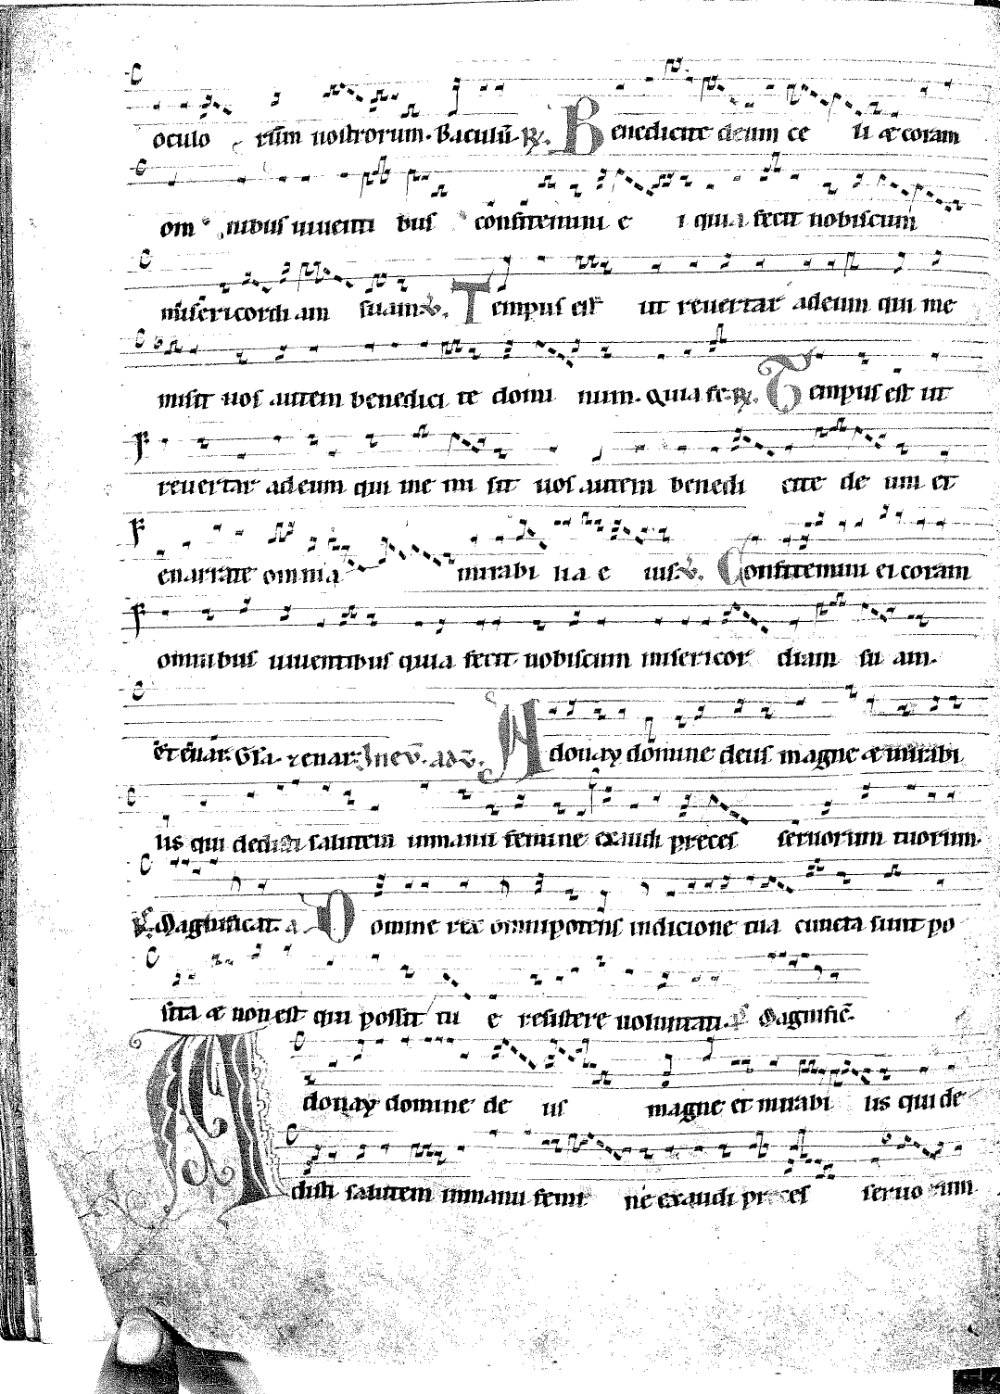 oculo rũm nostrorum. Baculũ. ℟. Benedicite deum celi & coram
omnibus uiuentibus confitemini ei quia fecit nobiscum
misericordiam suam. ℣. Tempus est ut reuertar adeum qui me
misit uos autem benedicite dominum. quia fe. ℟. Tempus est ut
reuertar adeum qui me misit uos autem benedicite deum et
enarrate omnia mirabilia eius. ℣. Confitemini ei coram
omnibus uiuentibus quia fecit nobiscum misericordiam suam.
et enar. Gła. enar. Adonay domine deus magne & mirabi
lis qui dedisti salutem inmanu femine exaudi preces seruorum tuorum.
Magnificat. a Domine rex omnipotens indicione tua cuncta sunt po
sita & non est qui possit tue resistere uoluntati. Magnific̃.
Adonay domine deus magne et mirabilis qui de
disti salutem inmanu femine exaudi preces seruorum